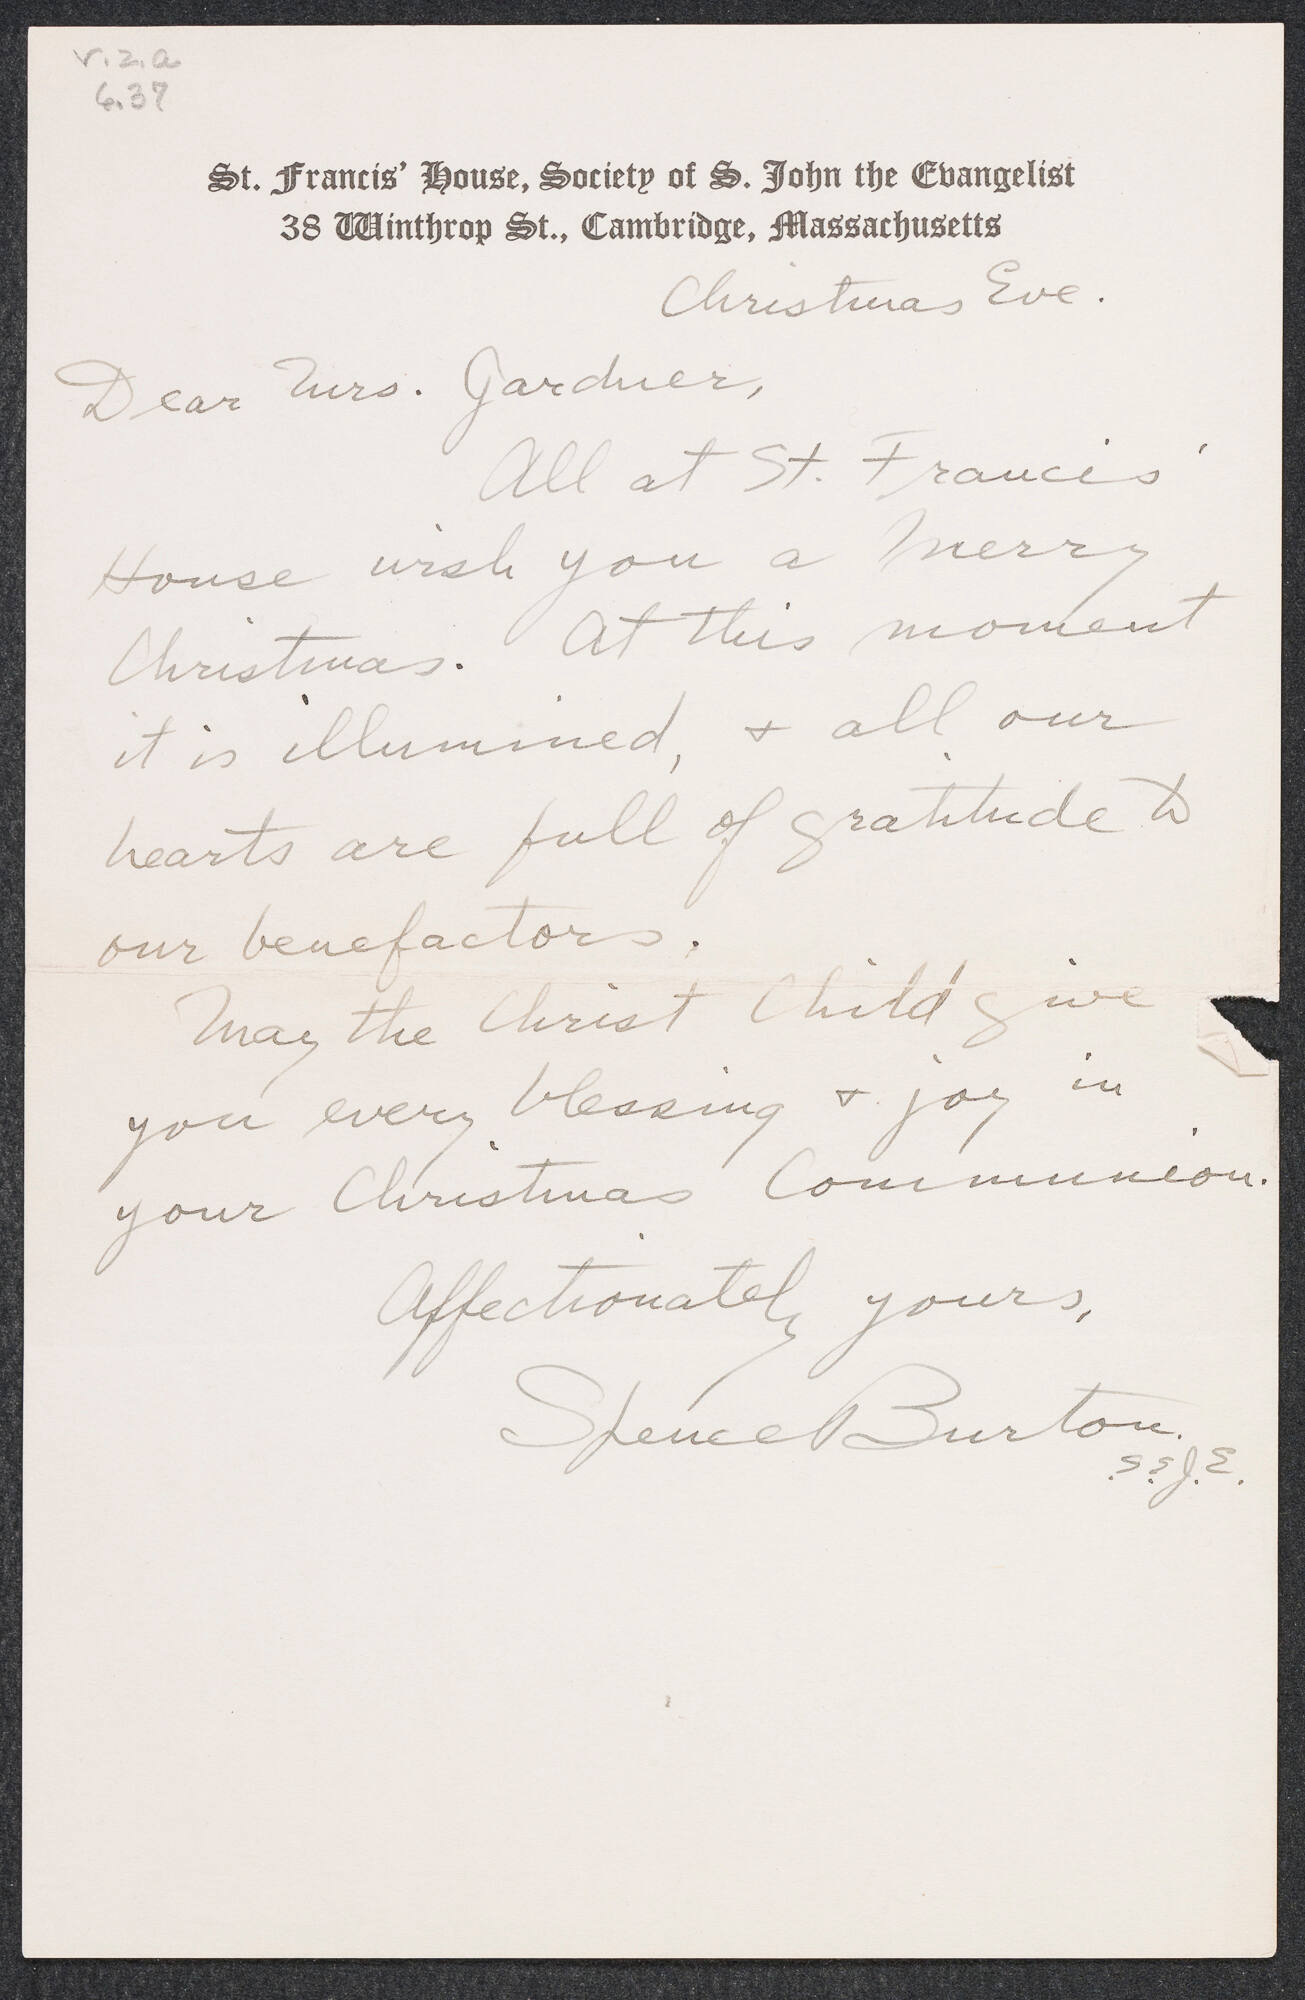 v.2.a
6.37
St. Francis' House, Society of S. John the Evangelist
38 Winthrop St., Cambridge, Massachusetts
Christmas Eve.
Dear Mrs. Gardner,
All at St. Francis'
House wish you a Merry
Christmas. At this moment
it is illumined, & all our
hearts are full of gratitude to
our benefactors.
May the Christ Child give
you every blessing & joy in
your Christmas Communion.
Affectionately yours,
Spence Burton.
S.S.J.E.